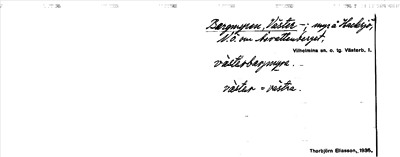 Bergmyran, Väster –; myr å Hacksjö,
V.ö. om Arvattenberget.
Vilhelmina sn. o. tg. Västerb. l.
västerbergmyra. –
väster = västra.
Thorbjörn Eliasson, 1935.